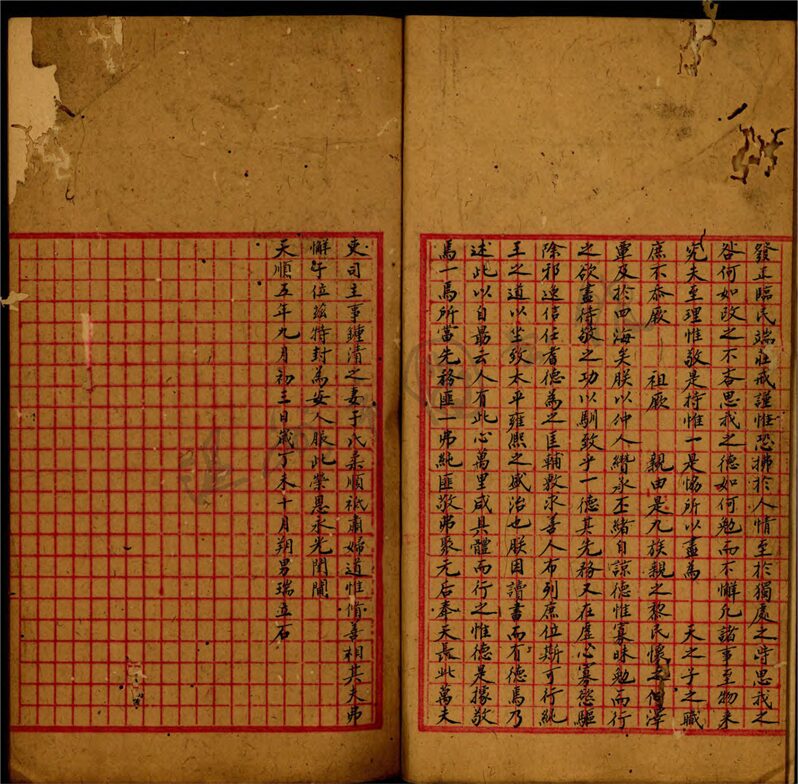 發正臨民端莊戒謹惟恐拂於人情至於獨處之時思我之
咎何如改之不吝思我之德如何勉而不懈凡諸事至物來
究夫至理惟敬是持惟一是協所以盡為 天之子之職
庶不忝厥 祖厥 親由是九族親之黎民懷之仁澤
覃及於四海矣朕以仲人纘承丕緒自諒德惟寡昧勉而行
之欲盡持敬之功以馴致乎一德其先務又在虛心寡慾驅
除邪逸信任耆德為之匡輔敷求善人布列庶位斯可行純
王之道以坐致太平雍熙之盛治也朕因讀書而有德焉乃
述此以自最云人有此心萬里咸具體而行之惟德是據敬
焉一焉所當先務匪一弗純匪敬弗聚元后奉天長此萬夫
吏司主事鍾清之妻于氏柔順祗肅婦道惟脩善相其夫弗
懈午位茲特封為安人服此榮恩永光閨閫
天順五年九月初三日歲丁未十月朔男瑞立石